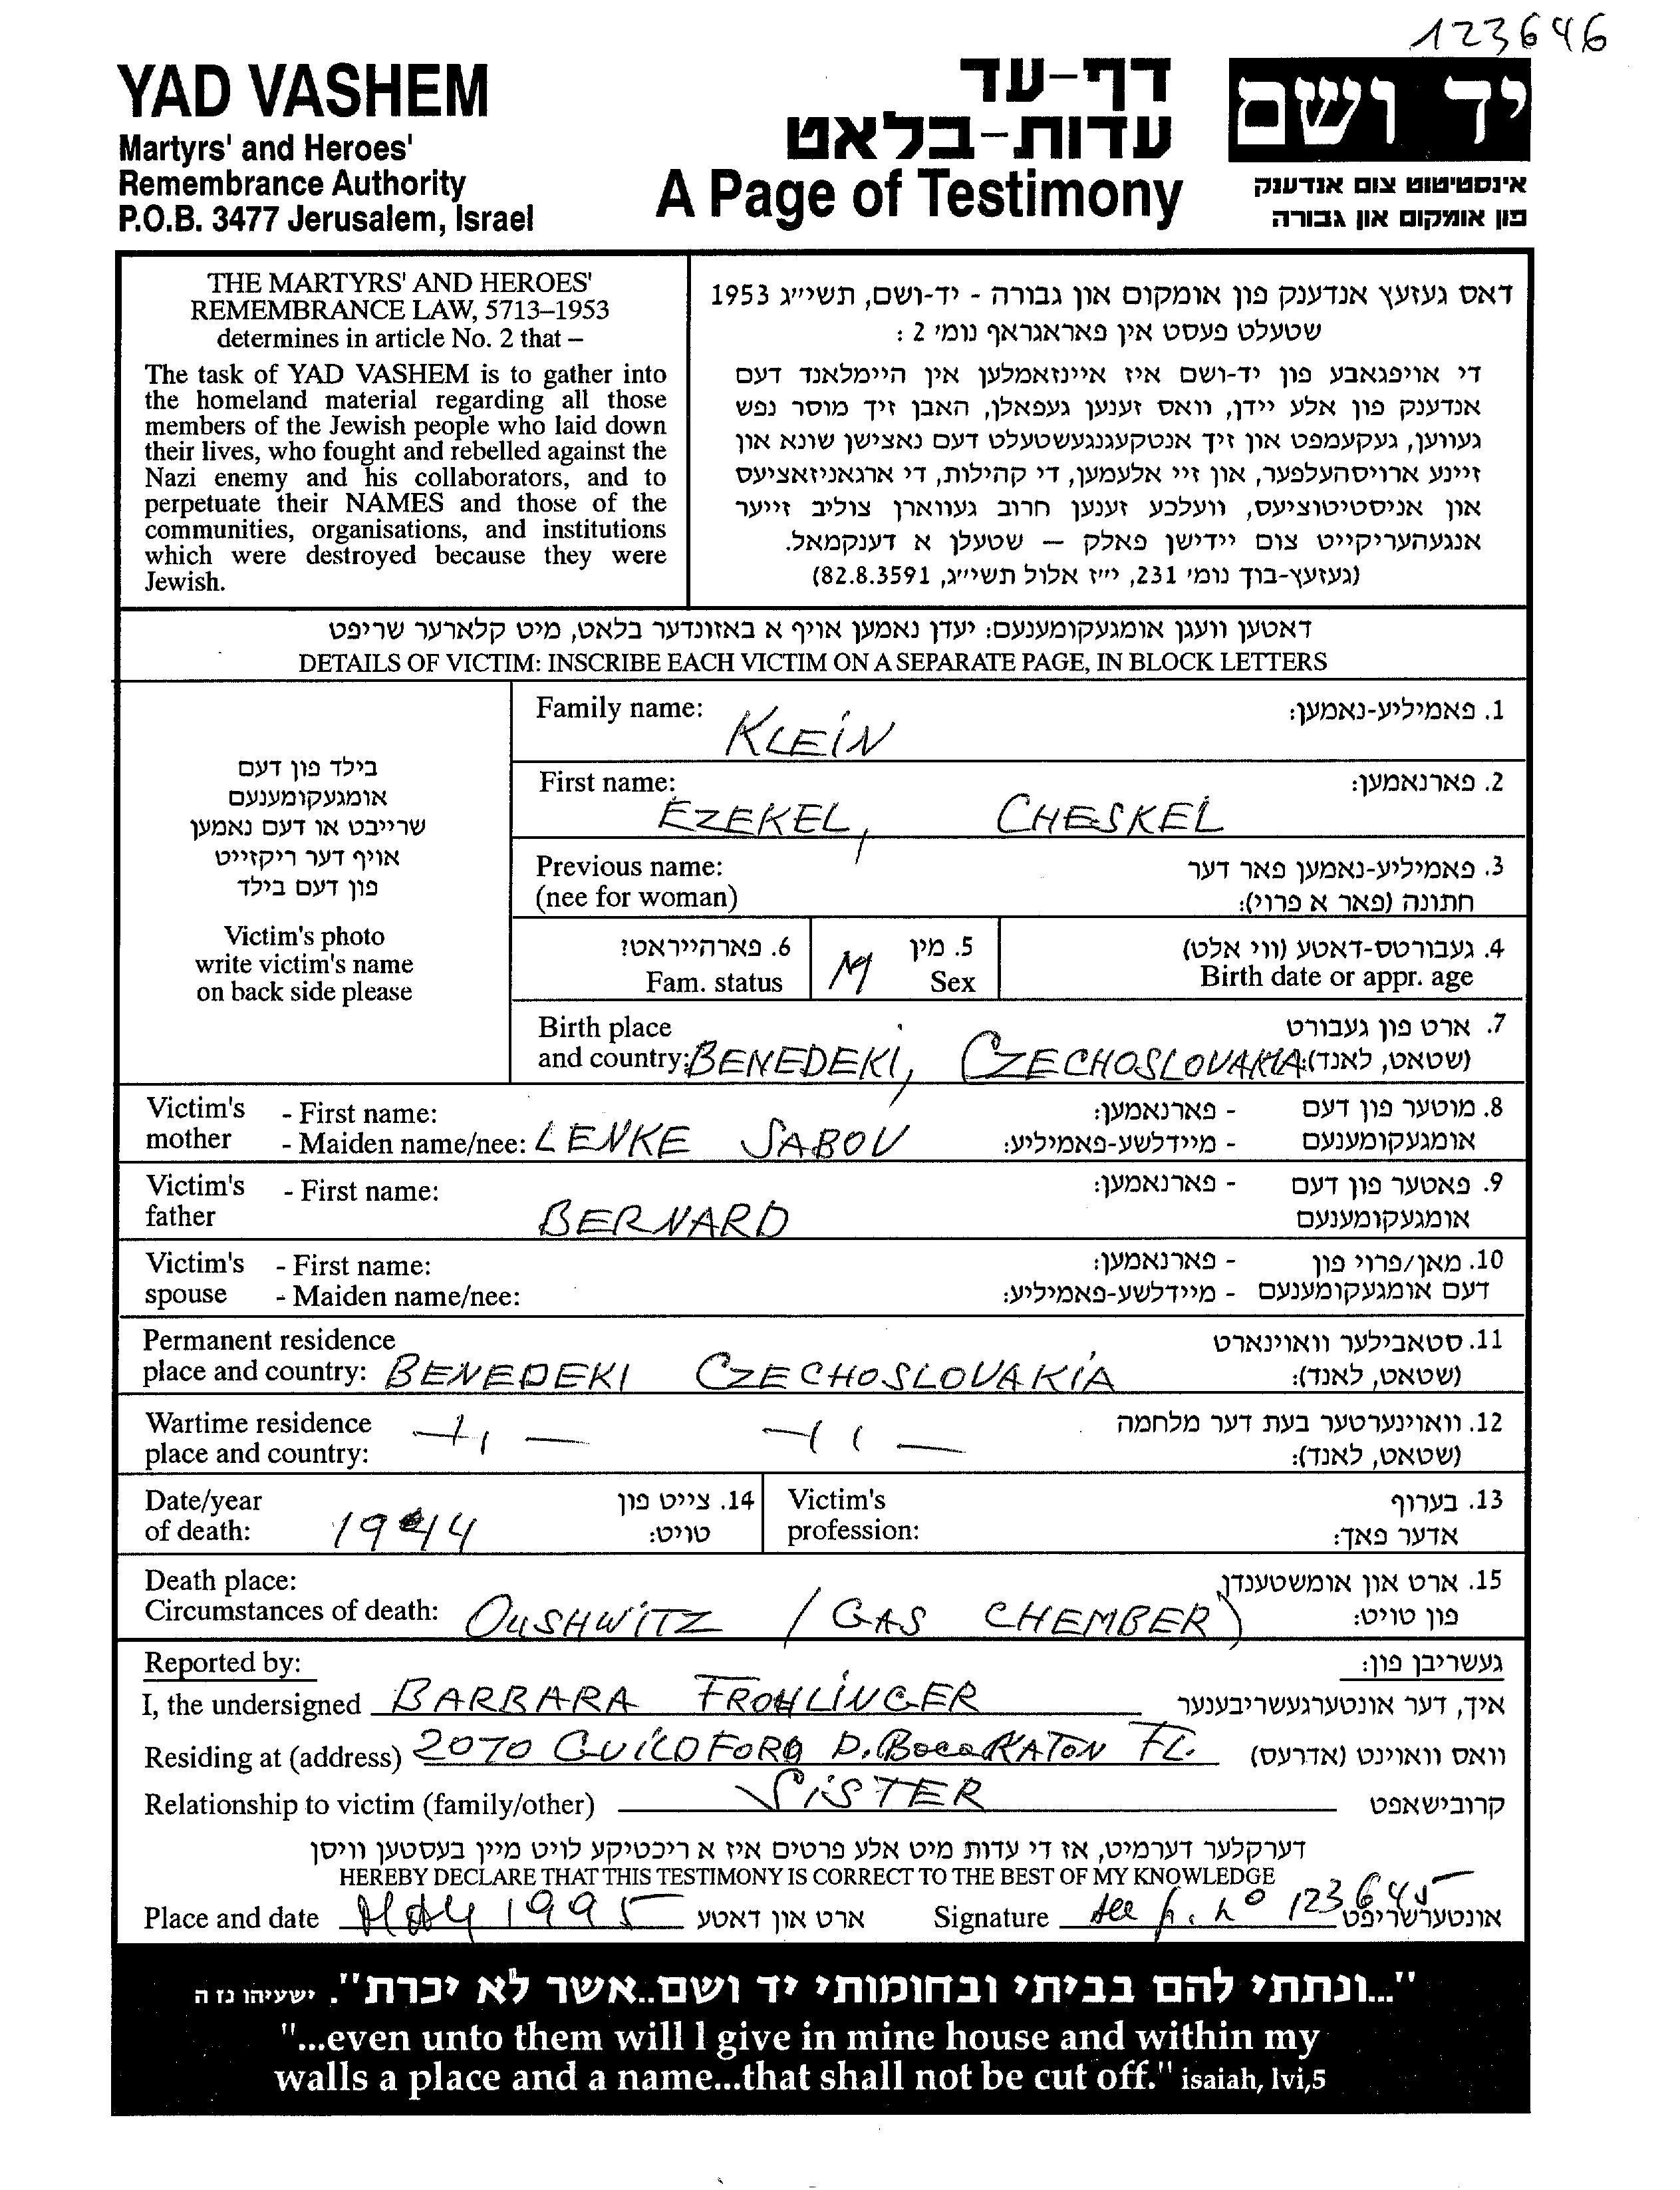 123646
YAD VASHEM
Martyrs' and Heroes'
Remembrance Authority
P.O.B. 3477 Jerusalem, Israel
דף-עד
עדות-בלאט
A Page of Testimony
יד ושם
אינסטיטוט צום אנדענק
פון אומקום און גבורה
THE MARTYRS' AND HEROES'
REMEMBRANCE LAW, 5713–1953
determines in article No. 2 that –
The task of YAD VASHEM is to gather into
the homeland material regarding all those
members of the Jewish people who laid down
their lives, who fought and rebelled against the
Nazi enemy and his collaborators, and to
perpetuate their NAMES and those of the
communities, organisations, and institutions
which were destroyed because they were
Jewish.
דאס געזעץ אנדענק פון אומקום און גבורה - יד-ושם, תשי״ג 1953
שטעלט פעסט אין פאראגראף נומ׳ 2 :
די אויפגאבע פון יד-ושם איז איינזאמלען אין היימלאנד דעם
אנדענק פון אלע יידן, וואס זענען געפאלן, האבן זיך מוסר נפש
געווען, געקעמפט און זיך אנטקעגנגעשטעלט דעם נאצישן שונא און
זיינע ארויסהעלפער, און זיי אלעמען, די קהילות, די ארגאניזאציעס
און אניסטיטוציעס, וועלכע זענען חרוב געווארן צוליב זייער
אנגעהעריקייט צום יידישן פאלק — שטעלן א דענקמאל.
(געזעץ-בוך נומ׳ 231, י״ז אלול תשי״ג, 82.8.3591)
דאטען וועגן אומגעקומענעם: יעדן נאמען אויף א באזונדער בלאט, מיט קלארער שריפט
DETAILS OF VICTIM: INSCRIBE EACH VICTIM ON A SEPARATE PAGE, IN BLOCK LETTERS
בילד פון דעם
אומגעקומענעם
שרייבט או דעם נאמען
אויף דער ריקזייט
פון דעם בילד
Victim's photo
write victim's name
on back side please
Family name: KLEIN 1. פאמיליע-נאמען:
First name: EZEKEL, CHESKEL 2. פארנאמען:
Previous name: 3. פאמיליע-נאמען פאר דער
(nee for woman) חתונה (פאר א פרוי):
6. פארהייראט? 5. מין 4. געבורטס-דאטע (ווי אלט)
Fam. status M Sex Birth date or appr. age
Birth place 7. ארט פון געבורט
and country: BENEDEKI, CZECHOSLOVAKIA (שטאט, לאנד):
Victim's - First name: - פארנאמען: 8. מוטער פון דעם
mother - Maiden name/nee: LENKE SABOV - מיידלשע-פאמיליע: אומגעקומענעם
Victim's - First name: - פארנאמען: 9. פאטער פון דעם
father BERNARD אומגעקומענעם
Victim's - First name: - פארנאמען: 10. מאן/פרוי פון
spouse - Maiden name/nee: - מיידלשע-פאמיליע: דעם אומגעקומענעם
Permanent residence 11. סטאבילער וואוינארט
place and country: BENEDEKI CZECHOSLOVAKIA (שטאט, לאנד):
Wartime residence 12. וואוינערטער בעת דער מלחמה
place and country: -11- -11- (שטאט, לאנד):
Date/year 14. צייט פון Victim's 13. בערוף
of death: 1944 טויט: profession: אדער פאך:
Death place: 15. ארט און אומשטענדן
Circumstances of death: OUSHWITZ (GAS CHEMBER) פון טויט:
Reported by: געשריבן פון:
I, the undersigned BARBARA FROHLINGER איך, דער אונטערגעשריבענער
Residing at (address) 2070 GUILDFORD D. Boca RATON FL. וואס וואוינט (אדרעס)
Relationship to victim (family/other) SISTER קרובישאפט
דערקלער דערמיט, אז די עדות מיט אלע פרטים איז א ריכטיקע לויט מיין בעסטען וויסן
HEREBY DECLARE THAT THIS TESTIMONY IS CORRECT TO THE BEST OF MY KNOWLEDGE
Place and date MAY 1995 ארט און דאטע Signature see p. no 123645 אונטערשריפט
"...ונתתי להם בביתי ובחומותי יד ושם..אשר לא יכרת". ישעיהו נז ה
"...even unto them will I give in mine house and within my
walls a place and a name...that shall not be cut off." isaiah, lvi,5